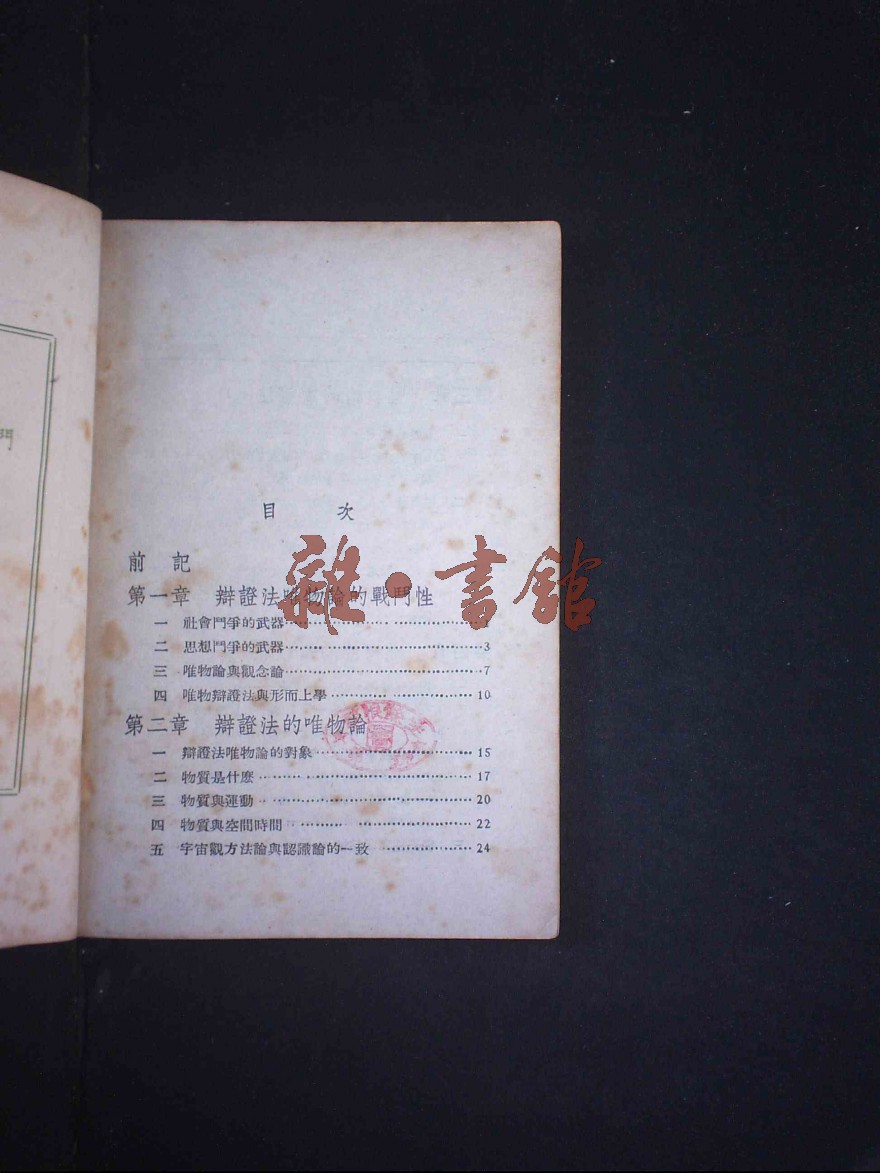 門
目次
前記
第一章 辯證法唯物論的戰鬥性
一 社會鬥爭的武器 1
二 思想鬥爭的武器 3
三 唯物論與觀念論 7
四 唯物辯證法與形而上學 10
第二章 辯證法的唯物論
一 辯證法唯物論的對象 15
二 物質是什麼 17
三 物質與運動 20
四 物質與空間時間 22
五 宇宙觀方法論與認識論的一致 24
雜·書館